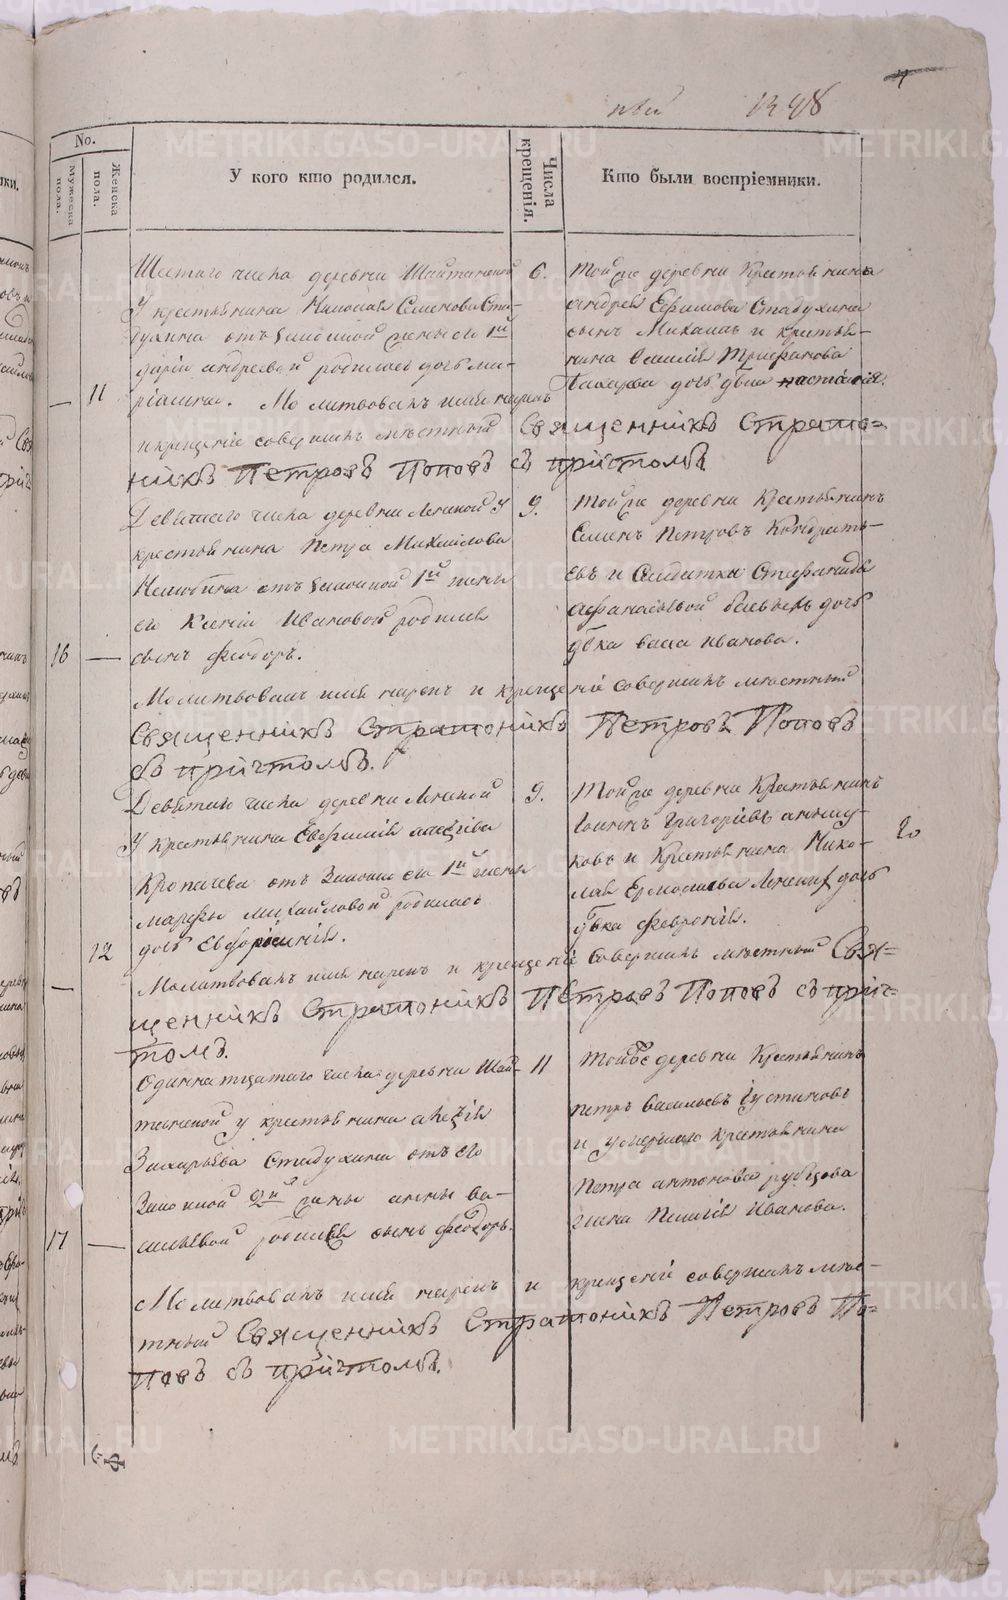 4
1348
No.
Мужеска пола.
Женска пола.
У кого кто родился.
Числа крещенія.
Кто были воспріемники.
Шестаго числа деревни Шайтанской
У крестьянина Николая Семенова Ста-
духина отъ законной жены его 1й
Даріи Андреевой родилась дочь Ма-
11
ріамна. Молитвовалъ имя нарекъ
и крещеніе совершилъ мѣстный Священникъ Страто-
никъ Петровъ Поповъ съ причтомъ
6.
Той же деревни Крестьянина
Андрея Ефимова Стадухина
сынъ Михаилъ и крестья-
нина Трифанова
дочь двка
Девятаго числа деревни Лениной У
крестьянина Петра Михайлова
отъ законной 1й жены
его Ксеніи Ивановой родился
16
сынъ Феодоръ.
Молитвовалъ имя нарекъ и крещеніе совершилъ мѣстный
Священникъ Стратоникъ Петровъ Поповъ
съ причтомъ.
9.
Той же деревни Крестьянинъ
Семенъ Петровъ Кондрать-
евъ и Солдатки Стефаниды
Афанасьевой дочь
двка Иванова.
Девятаго числа деревни Лениной
У крестьянина Евфимія
Кропачева отъ Законной его 1й жены
Марфы Михайловой родилась
12
дочь Евфросинія.
Молитвовалъ имя нарекъ и крещеніе совершилъ мѣстный Свя=
щенникъ Стратоникъ Петровъ Поповъ съ прич=
томъ.
9.
Той же деревни Крестьянинъ
Іоаннъ Григорьевъ
ковъ и Крестьянина Нико-
лая Ермолаева дочь
двка Февронія.
20
Одиннатцатаго числа деревни Шай-
танской у крестьянина Алексія
Захарьева Стадухина отъ его
Законной 2й жены Анны Ва-
17
сильевой родился сынъ Феодоръ.
Молитвовалъ имя нарекъ и крещеніе совершилъ мѣс-
тный Священникъ Стратоникъ Петровъ По=
повъ съ причтомъ.
11
Тойже деревни Крестьянинъ
Петръ Васильевъ Устиновъ
и умершаго Крестьянина
Петра Антонова Рубцова
жена Пелагія Иванова.
METRIKI.GASO-URAL.RU